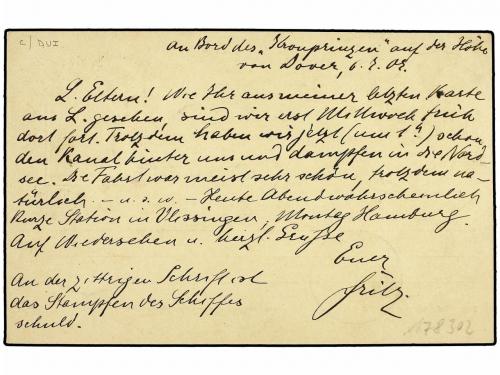 c/ DUI
an Bord des „Kronprinzen" auf der Höhe
von Dover, 6.5.05.
L. Eltern! Wie Ihr aus meiner letzten Karte
aus L. gesehen, sind wir erst Mittwoch früh
dort fort. Trotzdem haben wir jetzt (um 1 h) schon
den Kanal hinter uns und dampfen in die Nord-
see. Die Fahrt war meist sehr schön, trotzdem na-
türlich — u. s. w. — Heute Abend wahrscheinlich
kurze Station in Vlissingen, Montag Hamburg.
Auf Wiedersehen u. herzl. Grüsse
Euer
Fritz.
An der zittrigen Schrift ist
das Stampfen des Schiffes
schuld.
178302